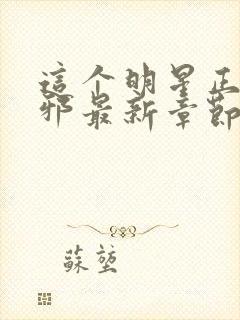 這个明星正
邪最新章節
蘇堃